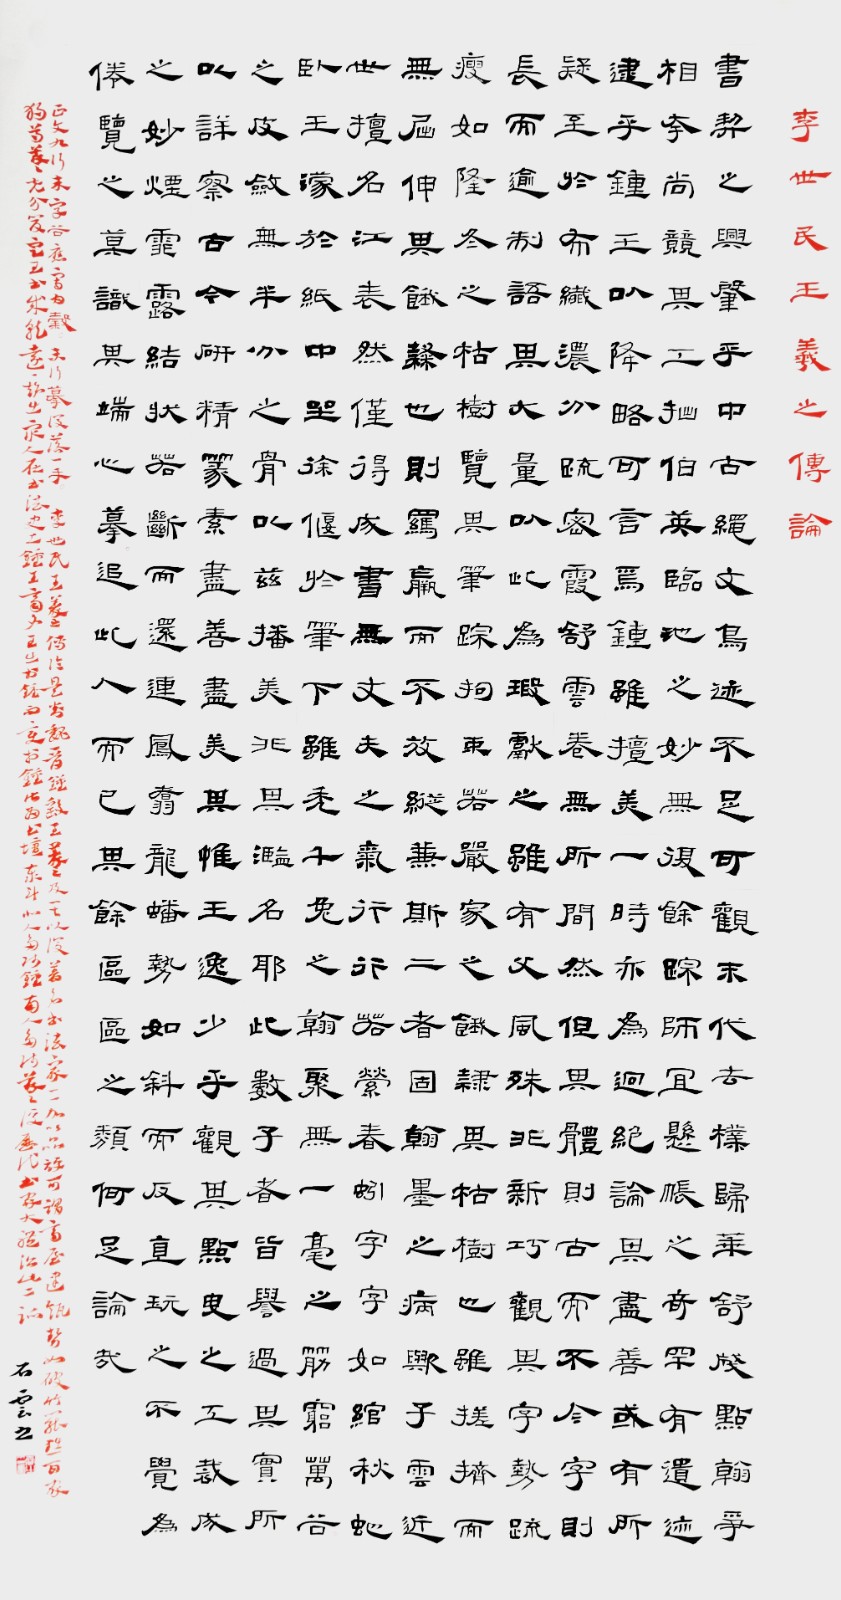 李世民王羲之傳論
書契之興肇乎中古繩文鳥迹不足可觀末代去樸歸華舒牋點翰爭
相夸尚競其工拙伯英臨池之妙無復餘蹤師宜懸帳之奇罕有遺迹
逮乎鍾王以降略可言焉鍾雖擅美一時亦為迥絕論其盡善或有所
疑至於布纖濃分疏密霞舒雲卷無所間然但其體則古而不今字則
長而逾制語其大量以此為瑕獻之雖有父風殊非新巧觀其字勢疏
瘦如隆冬之枯樹覽其筆蹤拘束若嚴家之餓隸其枯樹也雖搓擠而
無屈伸其餓隸也則羈羸而不放縱兼斯二者固翰墨之病歟子雲近
世擅名江表然僅得成書無丈夫之氣行行若縈春蚓字字如綰秋蛇
臥王濛於紙中坐徐偃於筆下雖禿千兔之翰聚無一毫之筋窮萬谷
之皮斂無半分之骨以茲播美非其濫名耶此數子者皆譽過其實所
以詳察古今研精篆素盡善盡美其惟王逸少乎觀其點曳之工裁成
之妙煙霏露結狀若斷而還連鳳翥龍蟠勢如斜而反直玩之不覺為
倦覽之莫識其端心摹追此人而已其餘區區之類何足論哉
正文九行末字谷應當為穀 末行摹後落一手 李世民王羲之傳論是對魏晉鍾繇王羲之及
石雲書